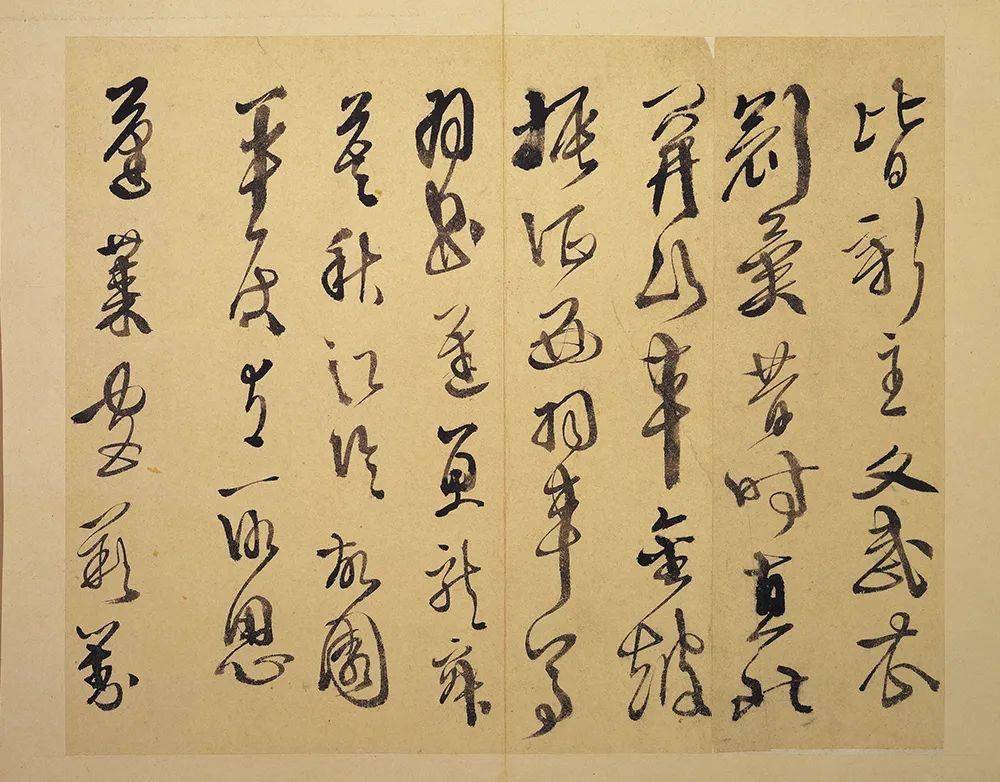 皆新主文武衣
冠異昔時直北
關山車金鼓
振征西羽車馬
羽書遲魚龍寂
寞秋江冷故國
平居有所思
蓬萊闕對